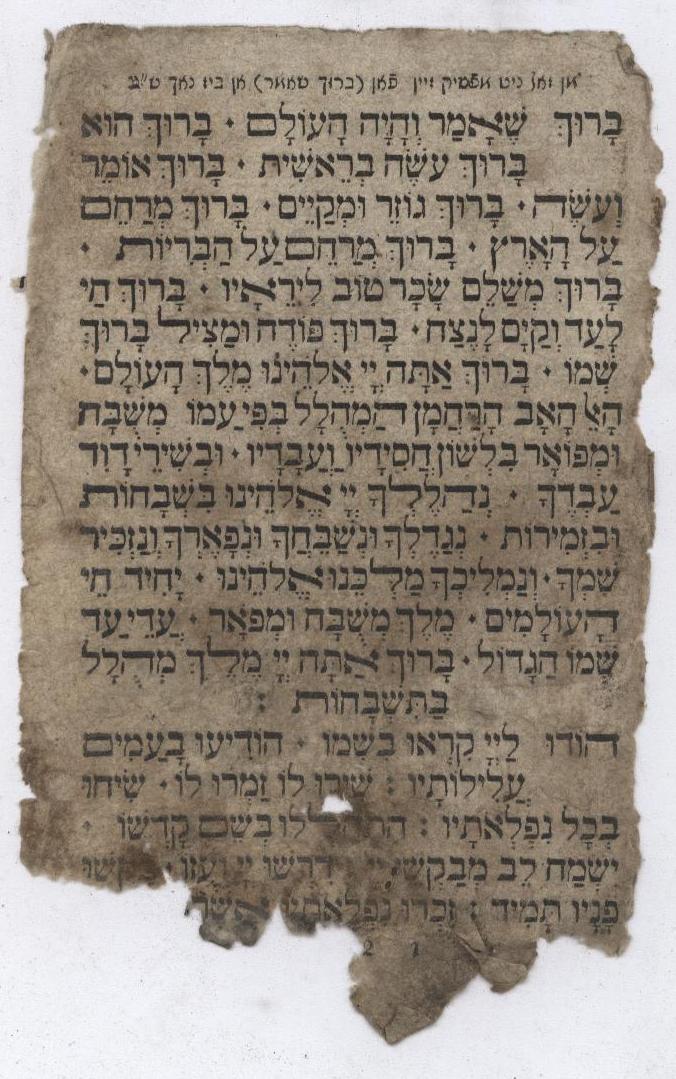 מן זאל ניט מפסיק זיין פֿאן (ברוך שאמר) אן ביז נאך ש"ע
בָּרוּךְ שֶׁאָמַר וְהָיָה הָעוֹלָם · בָּרוּךְ הוּא
בָּרוּךְ עֹשֶׂה בְרֵאשִׁית · בָּרוּךְ אוֹמֵר
וְעֹשֶׂה · בָּרוּךְ גּוֹזֵר וּמְקַיֵּים · בָּרוּךְ מְרַחֵם
עַל הָאָרֶץ · בָּרוּךְ מְרַחֵם עַל הַבְּרִיּוֹת ·
בָּרוּךְ מְשַׁלֵּם שָׂכָר טוֹב לִירֵאָיו · בָּרוּךְ חַי
לָעַד וְקַיָּם לָנֶצַח · בָּרוּךְ פּוֹדֶה וּמַצִּיל בָּרוּךְ
שְׁמוֹ · בָּרוּךְ אַתָּה יְיָ אֱלֹהֵינוּ מֶלֶךְ הָעוֹלָם ·
הָאֵל הָאָב הָרַחֲמָן הַמְהֻלָּל בְּפִי עַמּוֹ מְשֻׁבָּח
וּמְפוֹאָר בִּלְשׁוֹן חֲסִידָיו וַעֲבָדָיו · וּבְשִׁירֵי דָוִד
עַבְדֶּךָ · נְהַלֶּלְךָ יְיָ אֱלֹהֵינוּ בִּשְׁבָחוֹת
וּבִזְמִירוֹת · נְגַדֶּלְךָ וּנְשַׁבֵּחֲךָ וּנְפָאֶרְךָ וְנַזְכִּיר
שִׁמְךָ · וְנַמְלִיכְךָ מַלְכֵּנוּ אֱלֹהֵינוּ · יָחִיד חֵי
הָעוֹלָמִים · מֶלֶךְ מְשֻׁבָּח וּמְפֹאָר · עֲדֵי עַד
שְׁמוֹ הַגָּדוֹל · בָּרוּךְ אַתָּה יְיָ מֶלֶךְ מְהֻלָּל
בַּתִּשְׁבָּחוֹת :
הודוּ לַיְיָ קִרְאוּ בִשְׁמוֹ · הוֹדִיעוּ בָעַמִּים
עֲלִילוֹתָיו : שִׁירוּ לוֹ זַמְּרוּ לוֹ · שִׂיחוּ
בְּכָל נִפְלְאֹתָיו : הִתְהַלְלוּ בְּשֵׁם קָדְשׁוֹ ·
יִשְׂמַח לֵב מְבַקְשֵׁי יְיָ : דִּרְשׁוּ יְיָ וְעֻזּוֹ בַּקְּשׁוּ
פָּנָיו תָּמִיד : זִכְרוּ נִפְלְאֹתָיו אֲשֶׁר